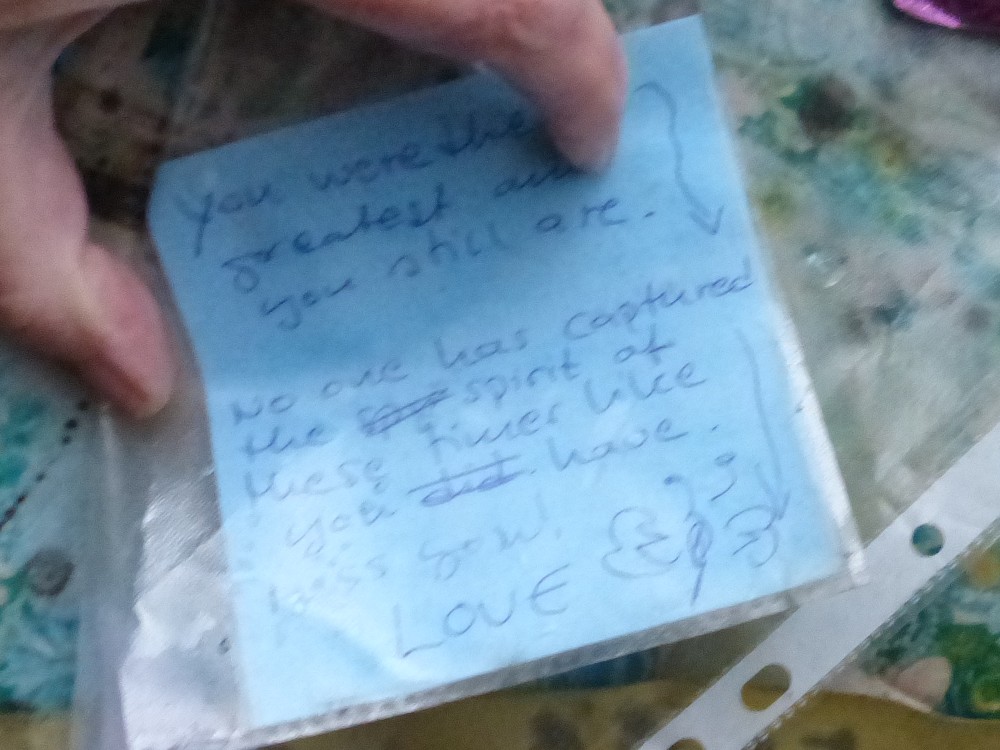 You were the
greatest and
you still are.
No one has captured
the spirit of
these times like
you did have.
miss you!
LOVE